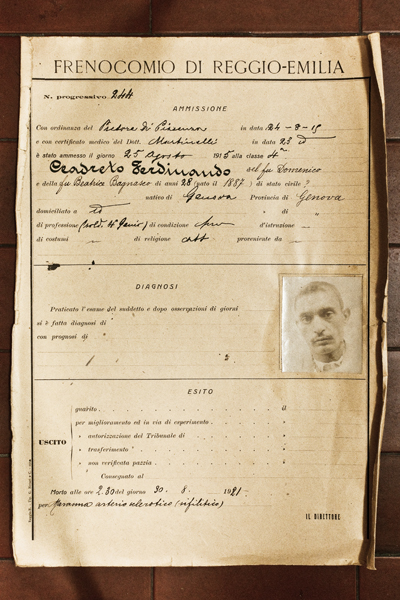 FRENOCOMIO DI REGGIO-EMILIA
N. progressivo 244
AMMISSIONE
Con ordinanza del in data 24-8-15
e con certificato medico del Dott. Martinelli in data 23 id
è stato ammesso il giorno 25 Agosto 1915 alla classe 4ª
Ferdinando del fu Domenico
e della fu Beatrice Bagnasco di anni 28 (nato il 1887) di stato civile ?
nativo di Genova Provincia di Genova
domiciliato a id » di »
di professione (sold. 4° Genio) di condizione d'istruzione —
di costumi — di religione catt proveniente da —
DIAGNOSI
Praticato l'esame del suddetto e dopo osservazioni di giorni
si è fatta diagnosi di
con prognosi di
ESITO
USCITO
guarito il
per miglioramento ed in via di esperimento »
» autorizzazione del Tribunale di »
» trasferimento »
» non verificata pazzia »
Consegnato al
Morto alle ore 2.30 del giorno 30. 8. 1921.
per Marasma arterio sclerotico (sifilitico)
IL DIRETTORE